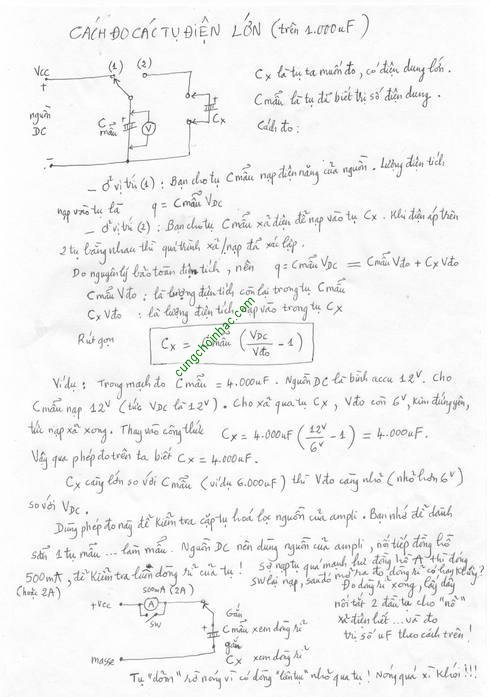 CÁCH ĐO CÁC TỤ ĐIỆN LỚN (trên 1.000uF)
(1) (2)
Vcc
+
nguồn
DC
C mẫu
V
Cx
-
Cx là tụ ta muốn đo, có điện dung lớn.
Cmẫu là tụ đã biết trị số điện dung.
Cách đo:
– Ở vị trí (1) : Bạn cho tụ Cmẫu nạp điện năng của nguồn. Lượng điện tích
nạp vào tụ là q = Cmẫu VDC
– Ở vị trí (2) : Bạn cho tụ Cmẫu xả điện để nạp vào tụ Cx. Khi điện áp trên
2 tụ bằng nhau thì quá trình xả/nạp đã xác lập.
Do nguyên lý bảo toàn điện tích, nên q = Cmẫu VDC = Cmẫu Vđo + Cx Vđo
Cmẫu Vđo : là lượng điện tích còn lại trong tụ Cmẫu
Cx Vđo : là lượng điện tích nạp vào trong tụ Cx
Rút gọn
Cx = Cmẫu (VDC/Vđo - 1)
cungchoinhac.com
Ví dụ : Trong mạch đo Cmẫu = 4.000uF. Nguồn DC là bình accu 12V. Cho
Cmẫu nạp 12V (tức VDC là 12V). Cho xả qua tụ Cx, Vđo còn 6V, kim đứng yên,
tức nạp xả xong. Thay vào công thức Cx = 4.000uF (12V/6V - 1) = 4.000uF.
Vậy qua phép đo trên ta biết Cx = 4.000uF.
Cx càng lớn so với Cmẫu (ví dụ 6.000uF) thì Vđo càng nhỏ (nhỏ hơn 6V)
so với VDC.
Dùng phép đo này để kiểm tra cặp tụ hoá lọc nguồn của ampli. Bạn nhớ để dành
sẵn 1 tụ mẫu ... làm mẫu. Nguồn DC nên dùng nguồn của ampli, nối tiếp đồng hồ
500mA, để kiểm tra luôn dòng rỉ của tụ! sợ nạp tụ quá mạnh hư đồng hồ A thì đóng
(hoặc 2A) SW lại nạp, sau đó mở ra đo dòng rỉ có hợp lý không?
Đo dòng rỉ xong, lấy dây
nối tắt 2 đầu tụ cho "nổ"
xả điện hết ... và đo
trị số uF theo cách trên!
+Vcc
500mA (2A)
A
SW
masse
Gắn
Cmẫu xem dòng rỉ
gắn
Cx xem dòng rỉ
Tụ "dỏm" sờ nóng vì có dòng "lén lút" nhỏ qua tụ! Nóng quá xì khói!!!